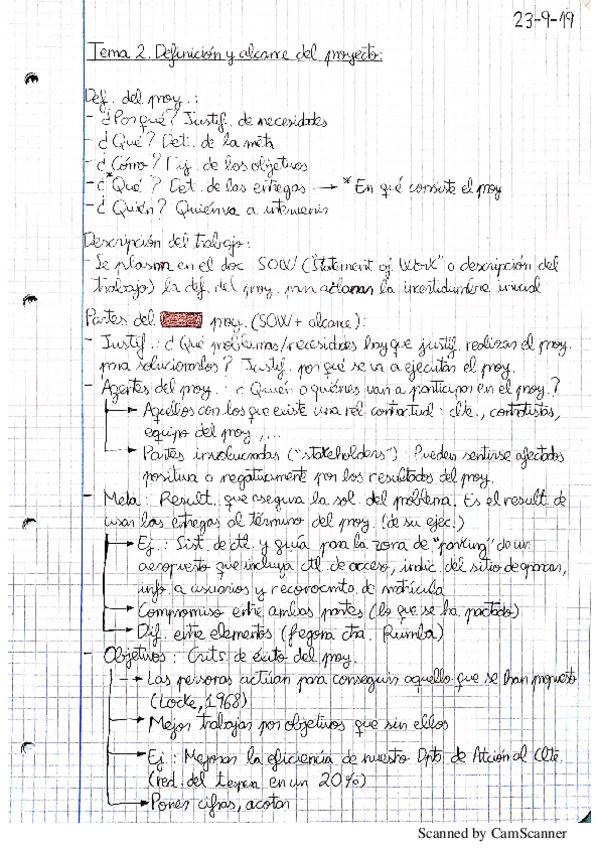 23-9-19
Tema 2. Definición y alcance del proyecto:
Def. del proy.:
- ¿Por qué? Justif. de necesidades
- ¿Qué? Det. de la meta
- ¿Cómo? Fij. de los objetivos
- ¿*Qué? Det. de las entregas → * En qué consiste el proy
- ¿Quién? Quién va a intervenir
Descripción del trabajo:
- Se plasma en el doc SOW ("Statement of Work" o descripción del
trabajo) la def. del proy. para aclarar la incertidumbre inicial
Partes del proy. (SOW + alcance):
- Justif.: ¿Qué problemas/necesidades hay que justif. realizar el proy.
para solucionarlos? Justif. por qué se va a ejecutar el proy.
- Agentes del proy.: ¿Quién o quiénes van a participar en el proy.?
→ Aquellos con los que existe una rel contractual: clte., contratistas,
equipo del proy,...
→ Partes involucradas ("stakeholders"): Pueden sentirse afectados
positiva o negativamente por los resultados del proy.
- Meta: Result. que asegura la sol. del problema. Es el result. de
usar las entregas al término del proy. (de su ejec.)
→ Ej.: Sist. de ctl. y guía para la zona de "parking" de un
aeropuerto que incluya ctl. de acceso, indic. del sitio de aparcar,
info a usuarios y reconocmto. de matrícula
→ Compromiso entre ambas partes (lo que se ha pactado)
→ Dif. entre elementos (fregona ctra. Rumba)
- Objetivos: Crits. de éxito del proy.
→ Las personas actúan para conseguir aquello que se han propuesto
(Locke, 1968)
→ Mejor trabajar por objetivos que sin ellos
→ Ej.: Mejorar la eficiencia de nuestro Dpto. de Atción al Clte.
(red. del tespera en un 20%)
→ Poner cifras, acotar
Scanned by CamScanner